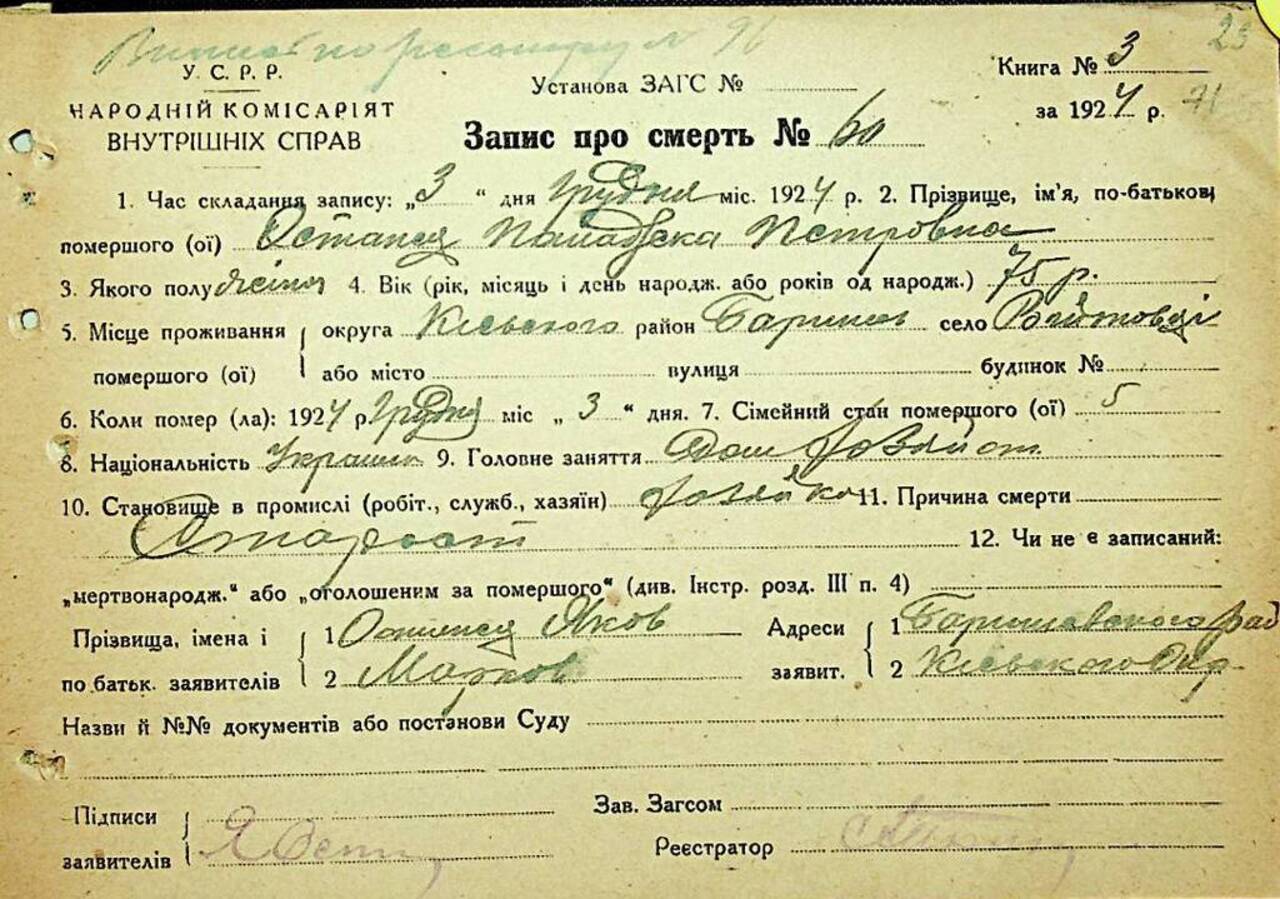 23
У. С. Р. Р.
НАРОДНІЙ КОМІСАРІЯТ
ВНУТРІШНІХ СПРАВ
Установа ЗАГС №
Книга № 3
за 1924 р. 71
Запис про смерть № 60
1. Час складання запису: „3“ дня Грудня міс. 1924 р. 2. Прізвище, ім'я, по-батькові
помершого (ої) Петровна
3. Якого полу 4. Вік (рік, місяць і день народж. або років од народж.) 75 р.
5. Місце проживання округа Кієвского район Бариш село
помершого (ої) або місто вулиця будинок №
6. Коли помер (ла): 1924 р Грудня міс „3“ дня. 7. Сімейний стан помершого (ої) 5
8. Національність Украин 9. Головне заняття
10. Становище в промислі (робіт., служб., хазяїн) 11. Причина смерти
Старост 12. Чи не є записаний:
„мертвонародж.“ або „оголошеним за помершого“ (див. Інстр. розд. III п. 4)
Прізвища, імена і 1 Яков Адреси 1 Баришевского
по батьк. заявителів 2 Марков заявит. 2 Кієвского Окр.
Назви й №№ документів або постанови Суду
Підписи Зав. Загсом
заявителів Реєстратор